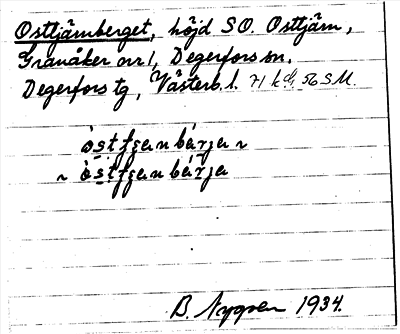 Osttjärnberget, höjd SO. Osttjärn,
Granåker nr 1, Degerfors sn.
Degerfors tg, Västerb. l. 71 kdr. 56 SM.
òstʃɛanbárja ~
~ òstʃɛanbárja
B. Nygren 1934.